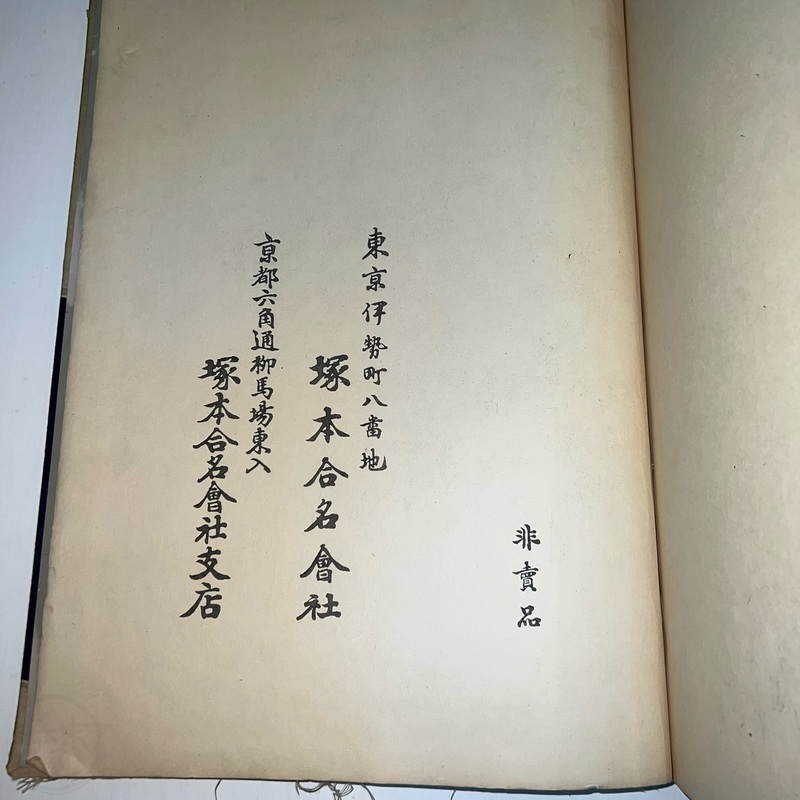 非賣品
東京伊勢町八番地
塚本合名會社
京都六角通柳馬場東入
塚本合名會社支店